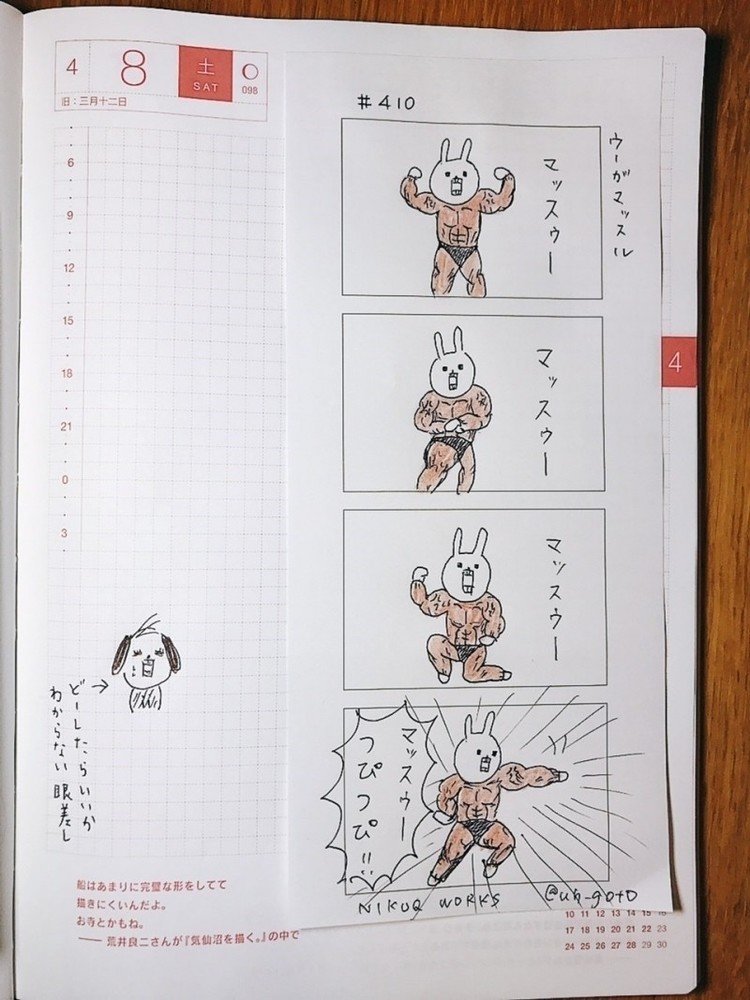 4 8 土 SAT 098
旧：三月十二日
6
9
12
15
18
21
0
3
4
#410
ウーがマッスル
マッスゥー
マッスゥー
マッスゥー
マッスゥー
つぴつぴ!!
NIKUQ WORKS @uh-goto
→
どーしたらいいか
わからない眼差し
船はあまりに完璧な形をしてて
描きにくいんだよ。
お寺とかもね。
—— 荒井良二さんが『気仙沼を描く。』の中で
10 11 12 13 14 15 16
17 18 19 20 21 22 23
24 25 26 27 28 29 30